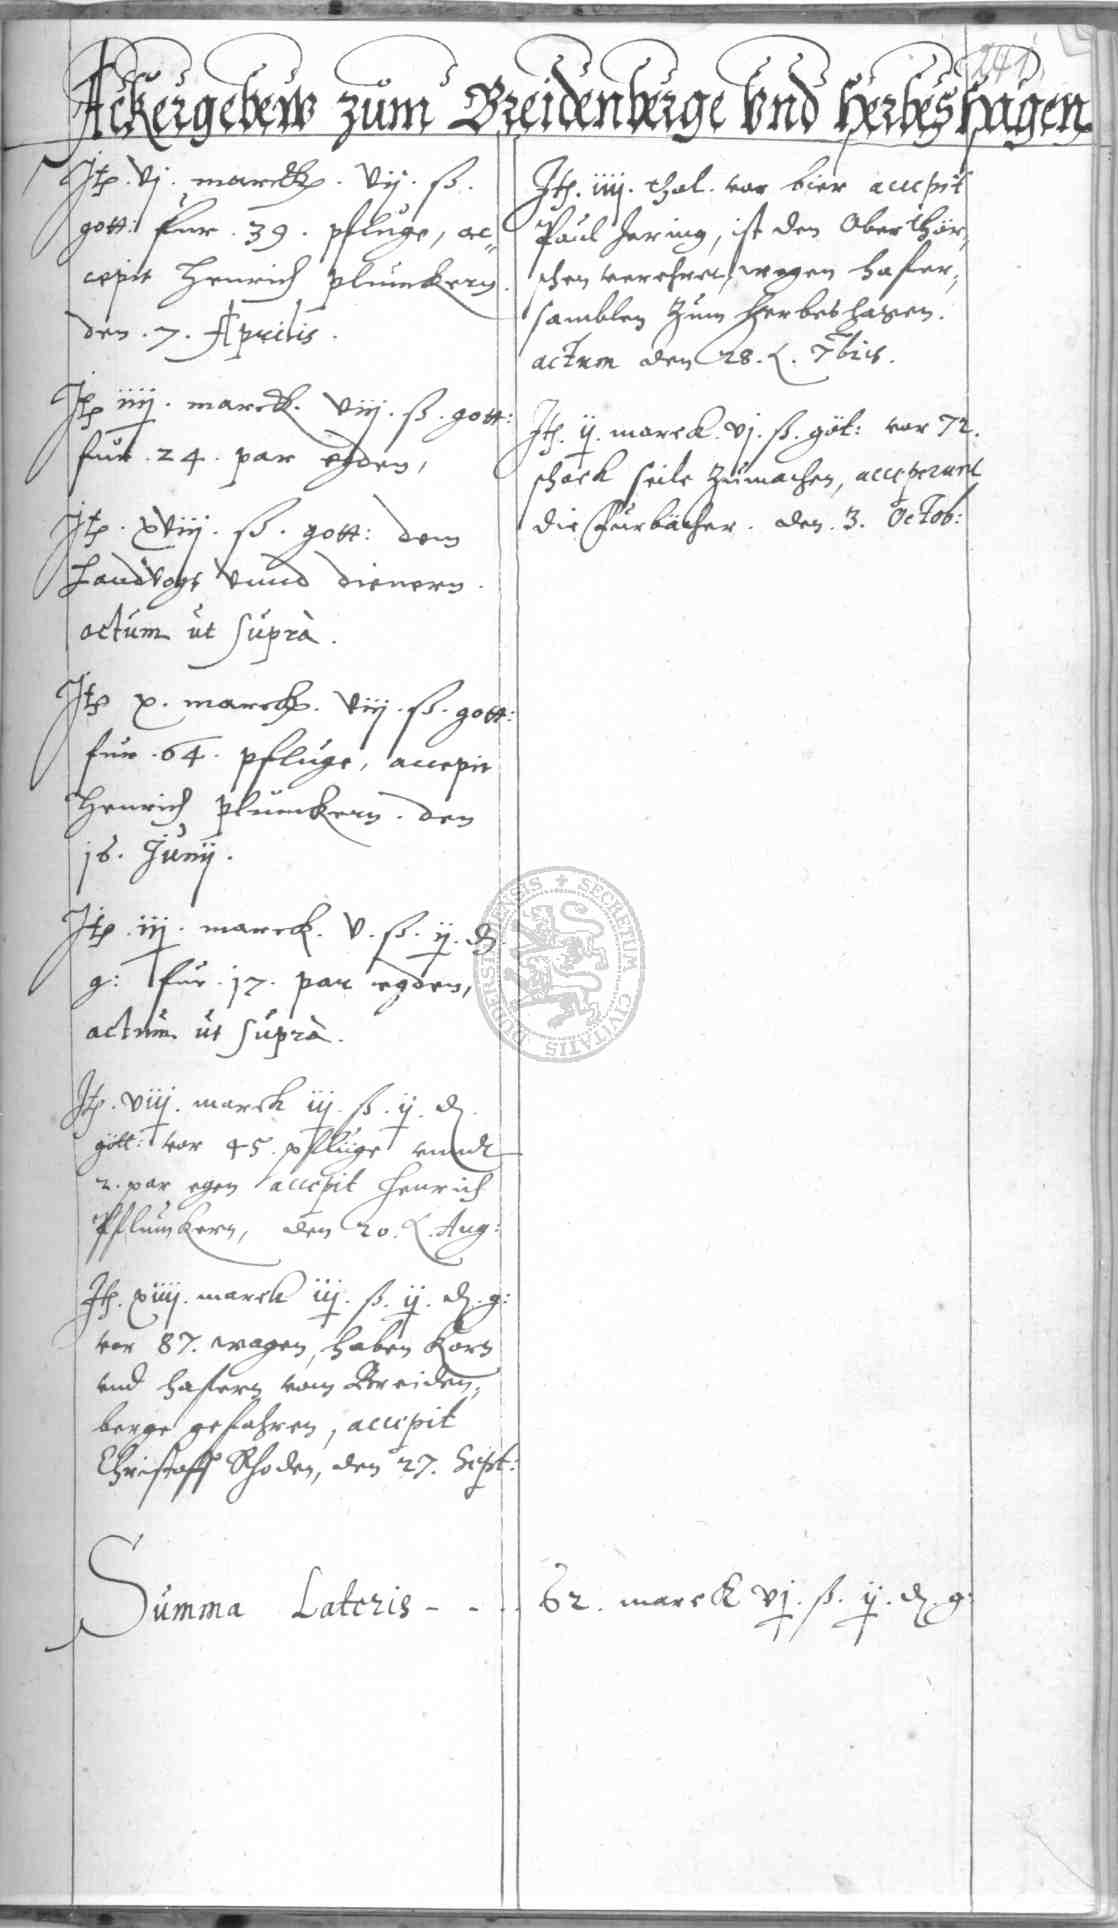 241
Ackergebew zum Breidenberge vnd Herbeshagen
Itp. vj. marck. vij. ß.
gott: fur .39. pfluge, ac„
cepit Henrich Plumckern
den .7. Aprilis.
Itp iiij. marck. viij. ß. gott:
fur .24. par egden,
Itp. xviij. ß. gott: dem
Landvogt vnnd dienern.
actum ut suprà.
Itp x. marck. viij. ß. gott:
fur .64. pfluge, accepit
Henrich Plumckern. den
16. Junij.
Itp. iij. marck. v. ß. ij. d.
g: fur .17. par egden,
actum ut suprà.
Itp. viij. marck iij. ß. ij. d.
gött: vor 45. pflüge vnndt
2. par egen accepit Henrich
Pflumkern, den 20. Aug:
Itp. xiiij. marck iij. ß. ij. d. g:
vor 87. wagen, haben Korn
vnd hafern vom Breiden„
berge gefahren, accepit
Christoff Rhoden, den 27. Sept:
Itp. iiij. thal. vor bier accepit
Paul Hering, ist den Ober
schen verehret, wegen hafer„
samblen Zum Herbeshagen.
actum den 28. 7bris.
Itp. ij. marck. vj. ß. göt: vor 72.
schock seile Zumachen, acceperunt
die . den. 3. Octob:
Summa Lateris - - . . 62. marck vj. ß. ij. d. g:
DUDERSTADENSIS + SECRETUM CIVITATIS